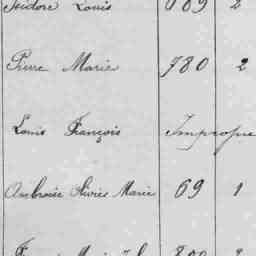 Isidore Louis 109 2
Pierre Marie 780 2
Louis François Impropre
Ambroise Olivier Marie 69 1